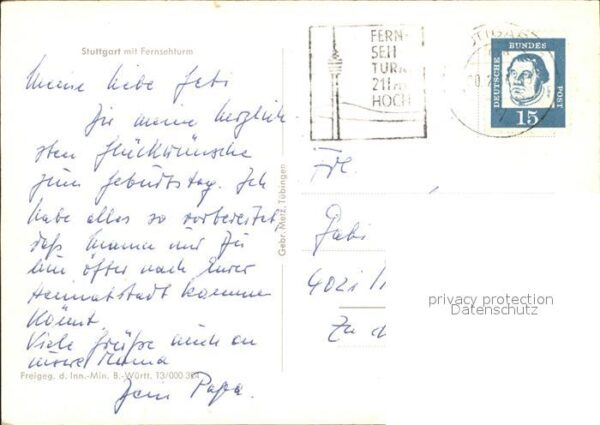 Stuttgart mit Fernsehturm
Meine liebe Gabi
Dir meine herzlich
sten Glückwünsche
zum Geburtstag. Ich
habe alles so vorbereitet,
daß Mama und Du
nun öfter nach Eurer
Heimatstadt kommen
könnt.
Viele Grüße auch an
unsere Mama
Dein Papa.
Freigeg. d. Inn.-Min. B.-Württ. 13/000 304
Gebr. Metz, Tübingen
FERN-
SEH
TURM
211 m
HOCH
DEUTSCHE
BUNDES
POST
15
Frl.
Gabi
privacy protection
Datenschutz